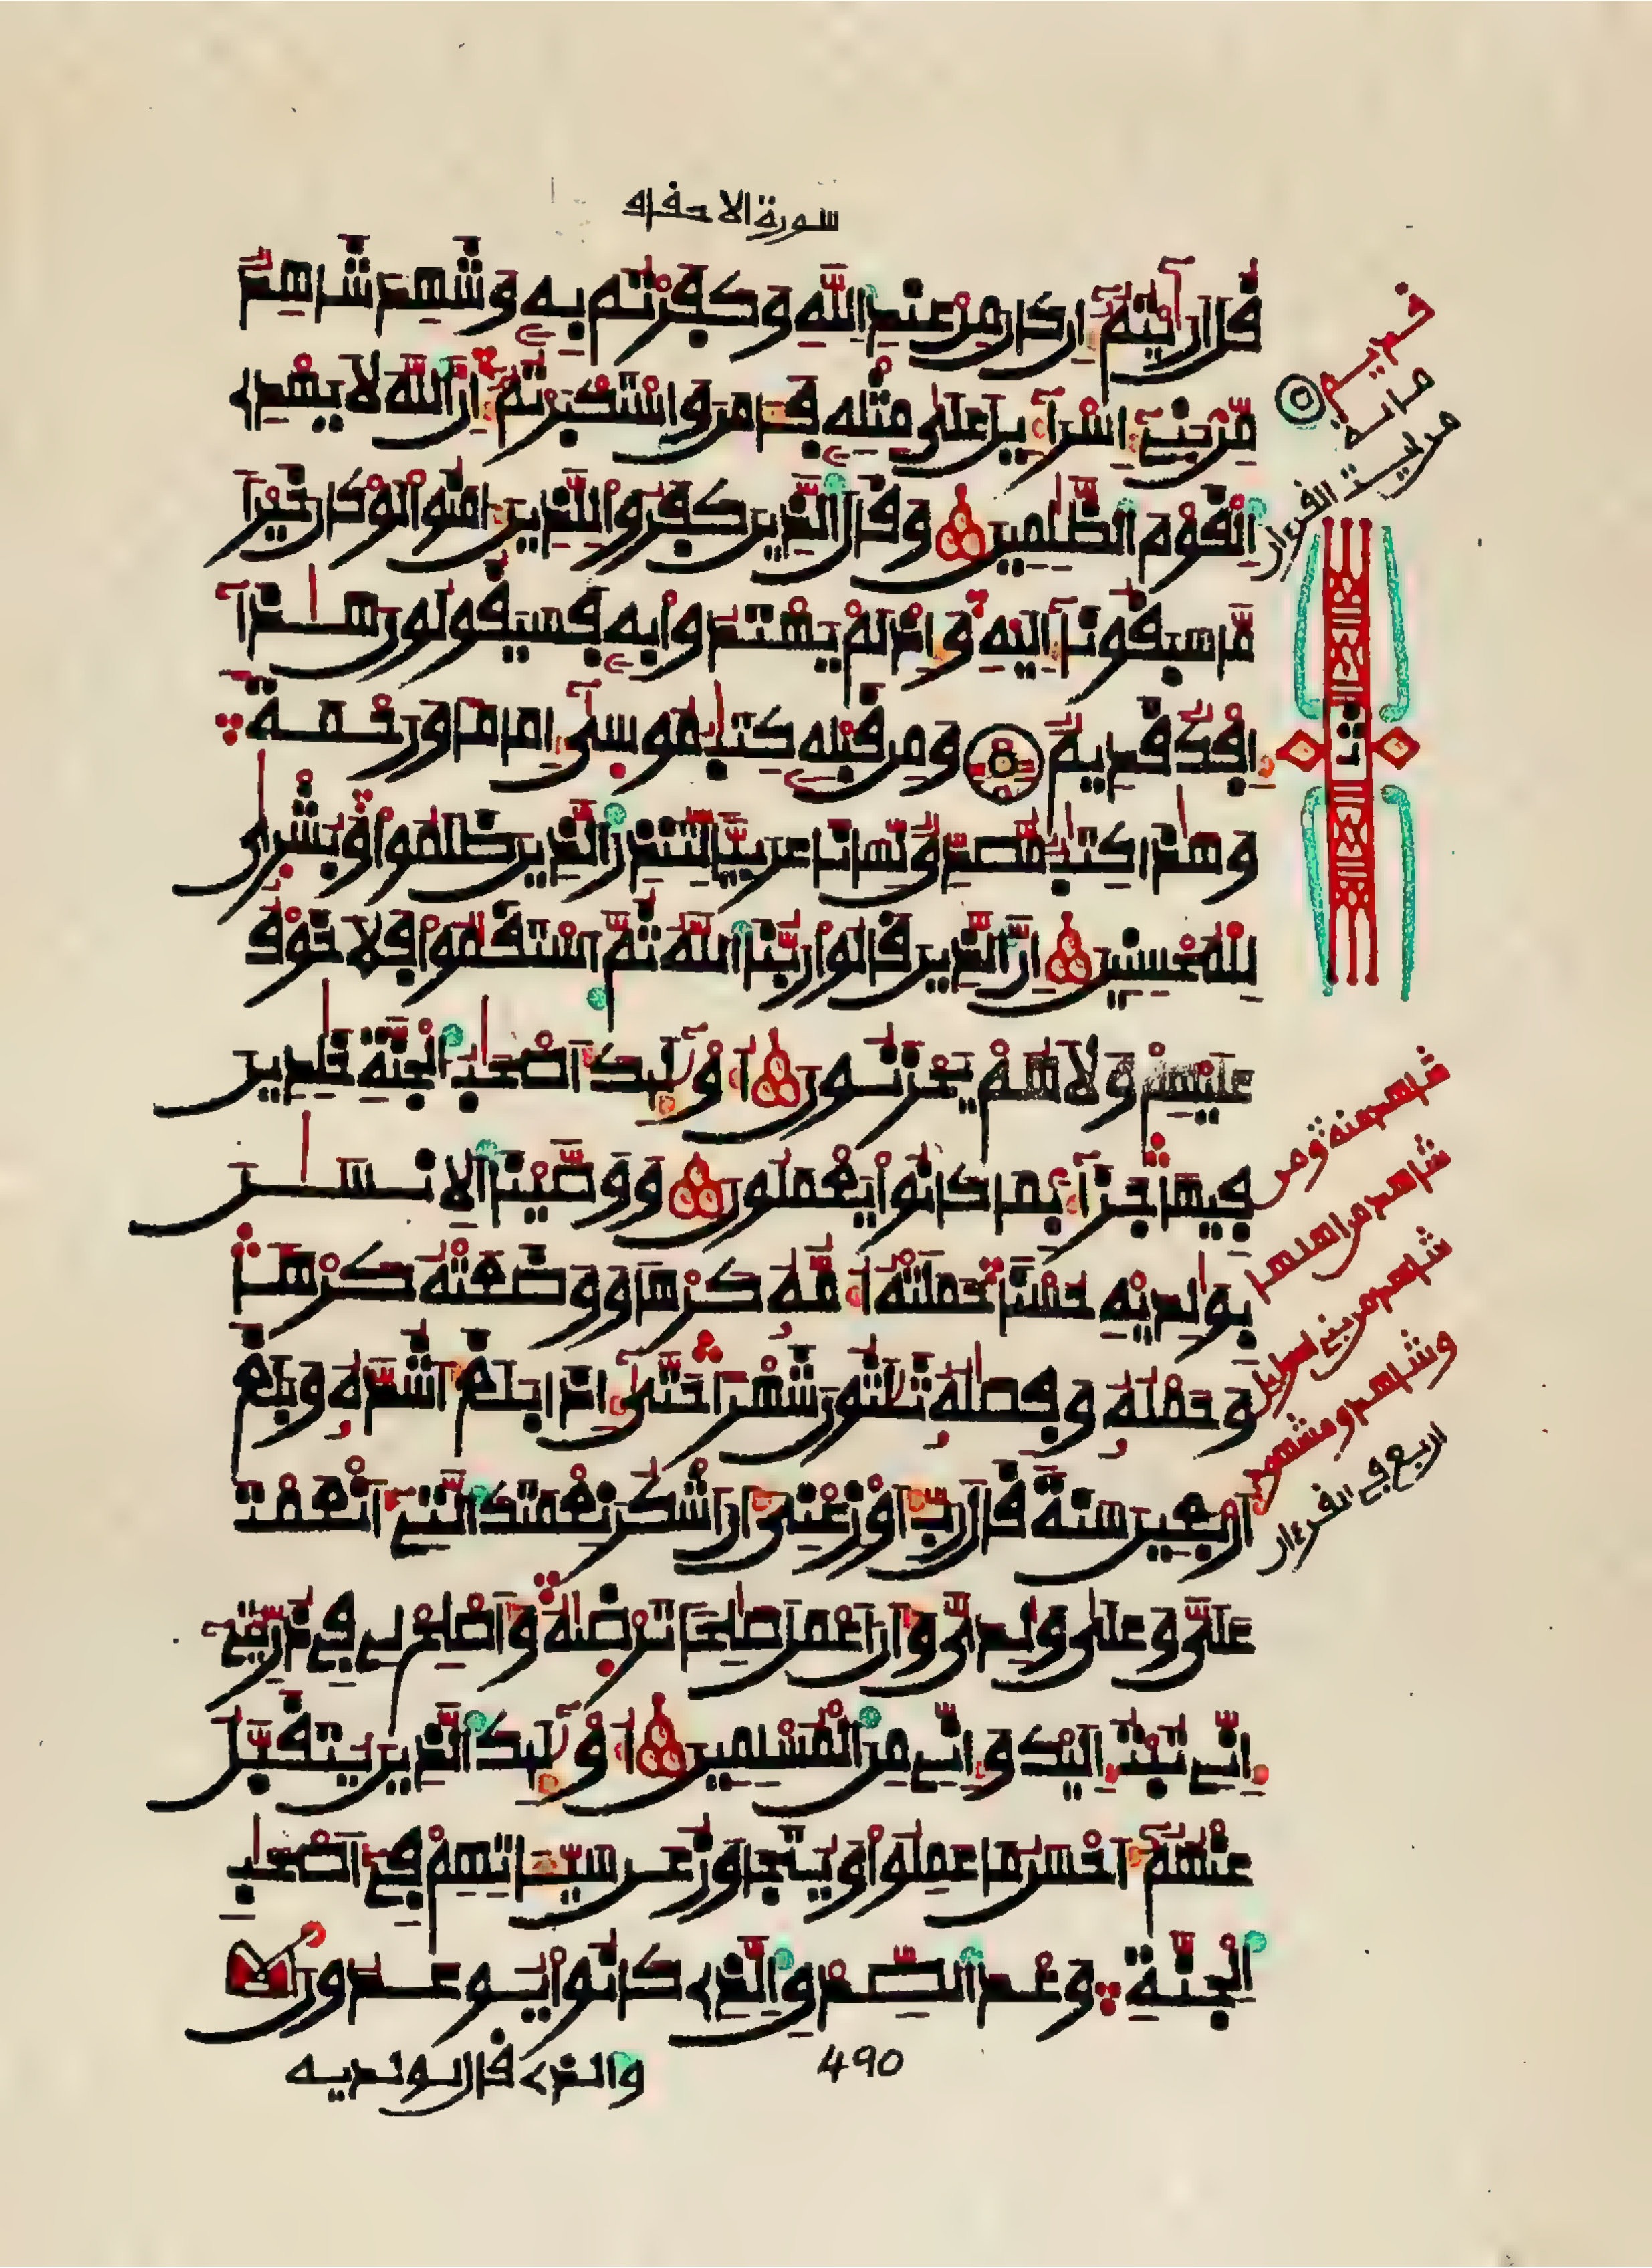 سورة الاحقاف
قُلَ اَرَٰيْتُمُۥٓ إِن كَانَ مِنْ عِندِ اِ۬للَّهِ وَكَفَرْتُم بِهِۦ وَشَهِدَ شَاهِدٌ
مِّنۢ بَنِےٓ إِسْرَآءِيلَ عَلَىٰ مِثْلِهِۦ فَـَٔامَنَ وَاسْتَكْبَرْتُمُۥٓ إِنَّ اَ۬للَّهَ لَا يَهْدِے
اِ۬لْقَوْمَ اَ۬لظَّٰلِمِينَ وَقَالَ اَ۬لذِينَ كَفَرُوا۟ لِلذِينَ ءَامَنُوا۟ لَوْ كَانَ خَيْراً
مَّا سَبَقُونَآ إِلَيْهِ وَإِذْ لَمْ يَهْتَدُوا۟ بِهِۦ فَسَيَقُولُونَ هَٰذَآ
إِفْكٌ قَدِيمٌ وَمِن قَبْلِهِۦ كِتَٰبُ مُوسَىٰٓ إِمَاماً وَرَحْمَةً
وَهَٰذَا كِتَٰبٌ مُّصَدِّقٌ لِّسَاناً عَرَبِيّاً لِّتُنذِرَ اَ۬لذِينَ ظَلَمُوا۟ وَبُشْرَىٰ
لِلْمُحْسِنِينَ إِنَّ اَ۬لذِينَ قَالُوا۟ رَبُّنَا اَ۬للَّهُ ثُمَّ اَ۪سْتَقَٰمُوا۟ فَلَا خَوْفٌ
عَلَيْهِمْ وَلَا هُمْ يَحْزَنُونَ أُو۟لَٰٓئِكَ أَصْحَٰبُ اُ۬لْجَنَّةِ خَٰلِدِينَ
فِيهَا جَزَآءَۢ بِمَا كَانُوا۟ يَعْمَلُونَ وَوَصَّيْنَا اَ۬لِانسَٰنَ
بِوَٰلِدَيْهِ حُسْناً حَمَلَتْهُ أُمُّهُۥ كَرْهاً وَوَضَعَتْهُ كَرْهاً
وَحَمْلُهُۥ وَفِصَٰلُهُۥ ثَلَٰثُونَ شَهْراً حَتَّىٰٓ إِذَا بَلَغَ أَشُدَّهُۥ وَبَلَغَ
أَرْبَعِينَ سَنَةً قَالَ رَبِّ أَوْزِعْنِىٓ أَنَ اَشْكُرَ نِعْمَتَكَ اَ۬لتِےٓ أَنْعَمْتَ
عَلَىَّ وَعَلَىٰ وَٰلِدَىَّ وَأَنَ اَعْمَلَ صَٰلِحاً تَرْضَىٰهُ وَأَصْلِحْ لِے فِے ذُرِّيَّتِےٓ
إِنِّے تُبْتُ إِلَيْكَ وَإِنِّے مِنَ اَ۬لْمُسْلِمِينَ أُو۟لَٰٓئِكَ اَ۬لذِينَ يُتَقَبَّلُ
عَنْهُمُۥٓ أَحْسَنُ مَا عَمِلُوا۟ وَيُتَجَاوَزُ عَن سَيِّـَٔاتِهِمْ فِےٓ أَصْحَٰبِ
اِ۬لْجَنَّةِ وَعْدَ اَ۬لصِّدْقِ اِ۬لذِے كَانُوا۟ يُوعَدُونَ
490
والذے قال لولديه
شاهد منه ومن
شاهد من اهلها
شاهد من بنے اسراءيل
وشاهد ومشهود
اربع في القرءان